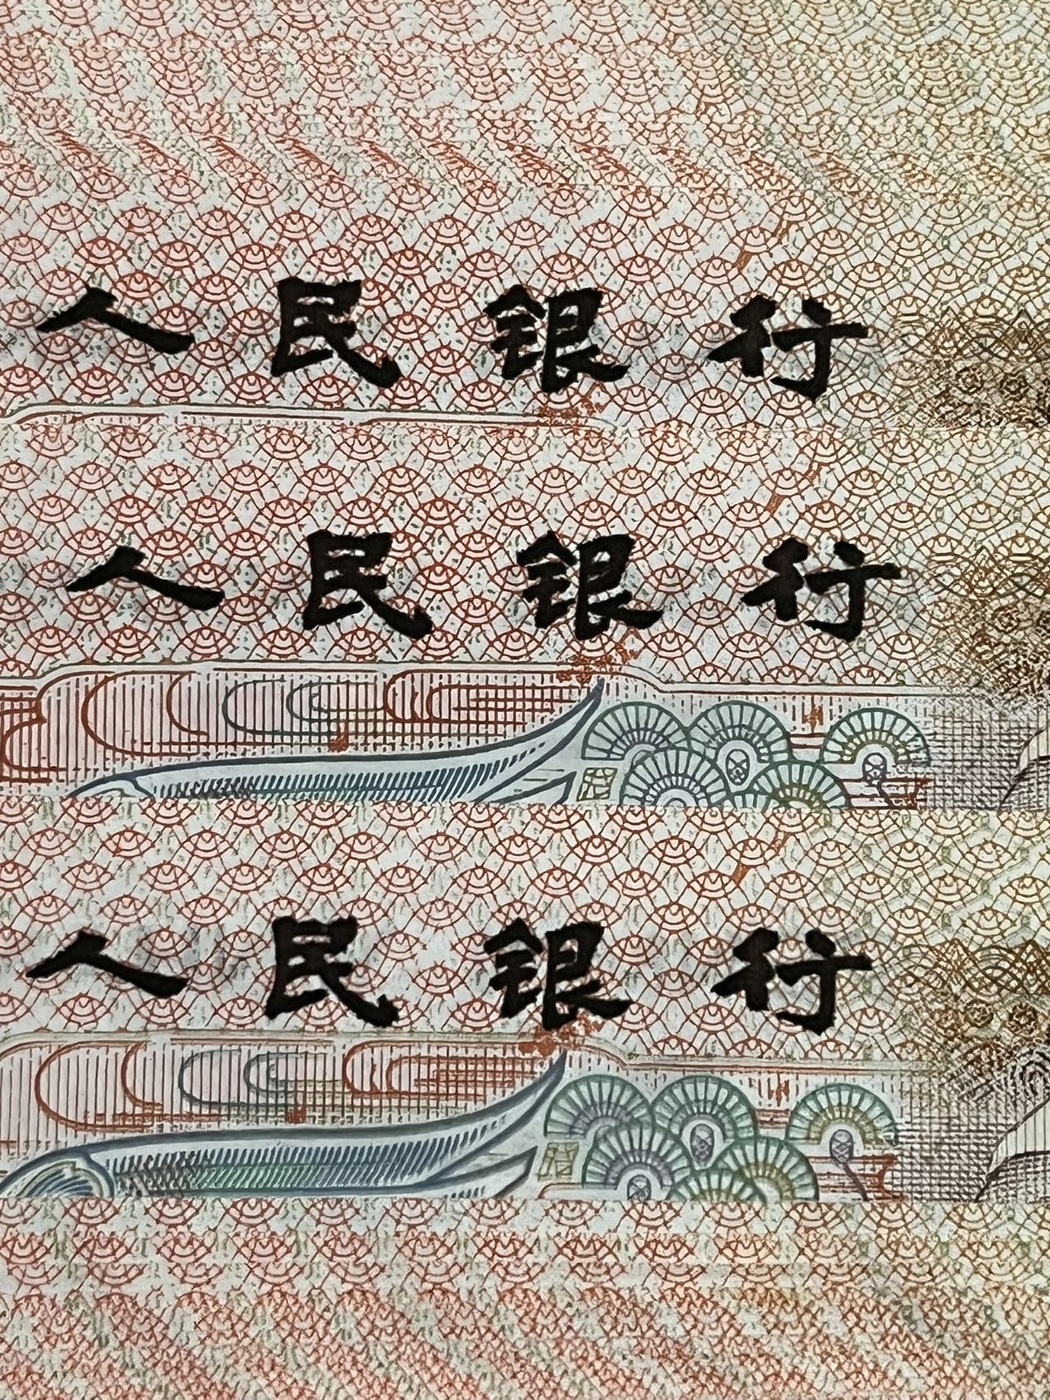 人民银行
人民银行
人民银行